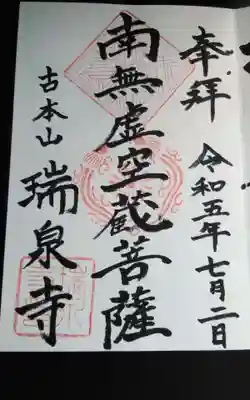 奉拝
令和五年七月二日
南無虚空蔵菩薩
古本山
瑞泉寺